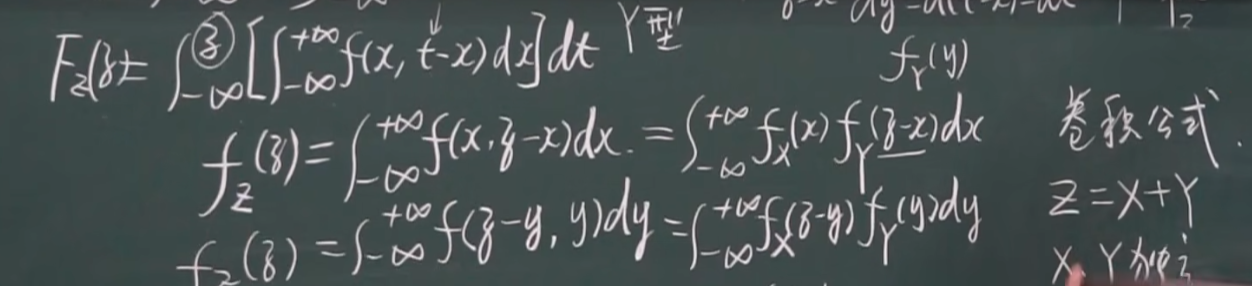 F_Z(z)= ∫_{-∞}^{z} [∫_{-∞}^{+∞} f(x, t-x)dx]dt Y型
f_Y(y)
f_Z(z) = ∫_{-∞}^{+∞} f(x, z-x)dx. = ∫_{-∞}^{+∞} f_X(x) f_Y(z-x)dx 卷积公式.
f_Z(z) = ∫_{-∞}^{+∞} f(z-y, y)dy = ∫_{-∞}^{+∞} f_X(z-y) f_Y(y)dy Z=X+Y
X、Y